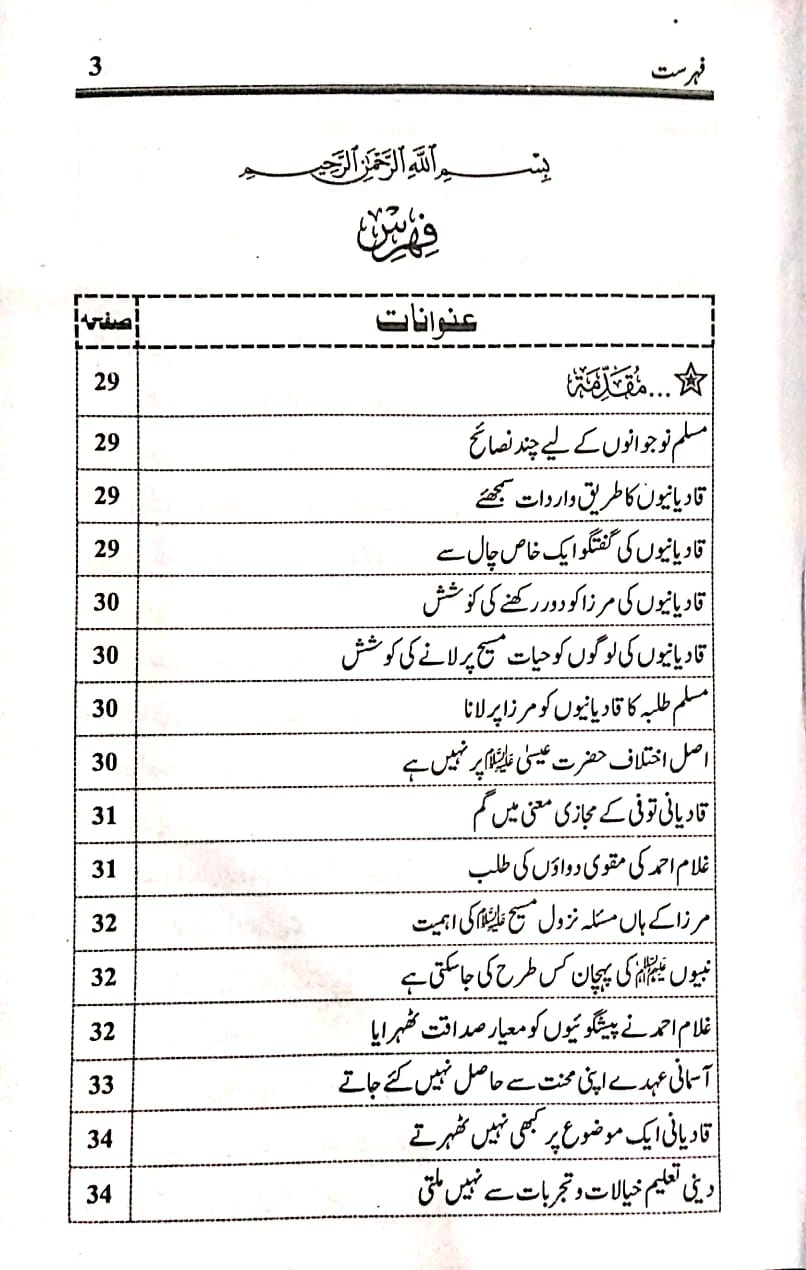 فہرست 3
بِسْمِ اللهِ الرَّحْمٰنِ الرَّحِيْمِ
فِهْرِسْ
عنوانات صفحہ
☆...مُقَدِّمَة 29
مسلم نوجوانوں کے لیے چند نصائح 29
قادیانیوں کا طریق واردات سمجھئے 29
قادیانیوں کی گفتگو ایک خاص چال سے 29
قادیانیوں کی مرزا کو دور رکھنے کی کوشش 30
قادیانیوں کی لوگوں کو حیات مسیح پر لانے کی کوشش 30
مسلم طلبہ کا قادیانیوں کو مرزا پر لانا 30
اصل اختلاف حضرت عیسیٰ علیہ السلام پر نہیں ہے 30
قادیانی توفی کے مجازی معنی میں گم 31
غلام احمد کی مقوی دواؤں کی طلب 31
مرزا کے ہاں مسئلہ نزول مسیح علیہ السلام کی اہمیت 32
نبیوں علیہم السلام کی پہچان کس طرح کی جاسکتی ہے 32
غلام احمد نے پیشگوئیوں کو معیار صداقت ٹھہرایا 32
آسمانی عہدے اپنی محنت سے حاصل نہیں کئے جاتے 33
قادیانی ایک موضوع پر کبھی نہیں ٹھہرتے 34
دینی تعلیم خیالات و تجربات سے نہیں ملتی 34